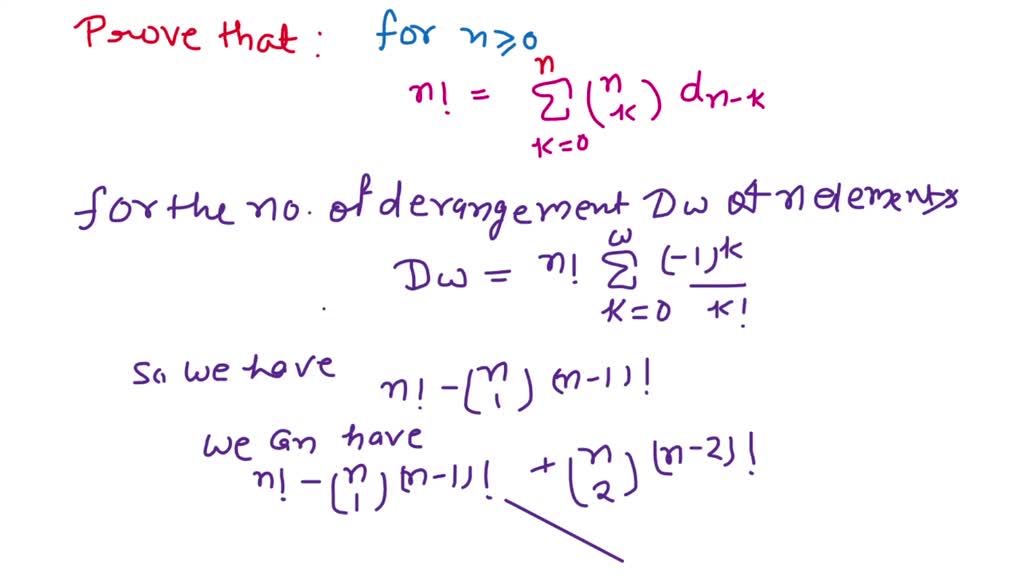 Prove that: for n ≥ 0
n! = n∑k=0 (n k) dn-k
for the no. of derangement Dw of n elements
Dw = n! w∑k=0 (-1)^k / k!
So we have n! - (n 1) (n-1)!
we can have
n! - (n 1) (n-1)! + (n 2) (n-2)!